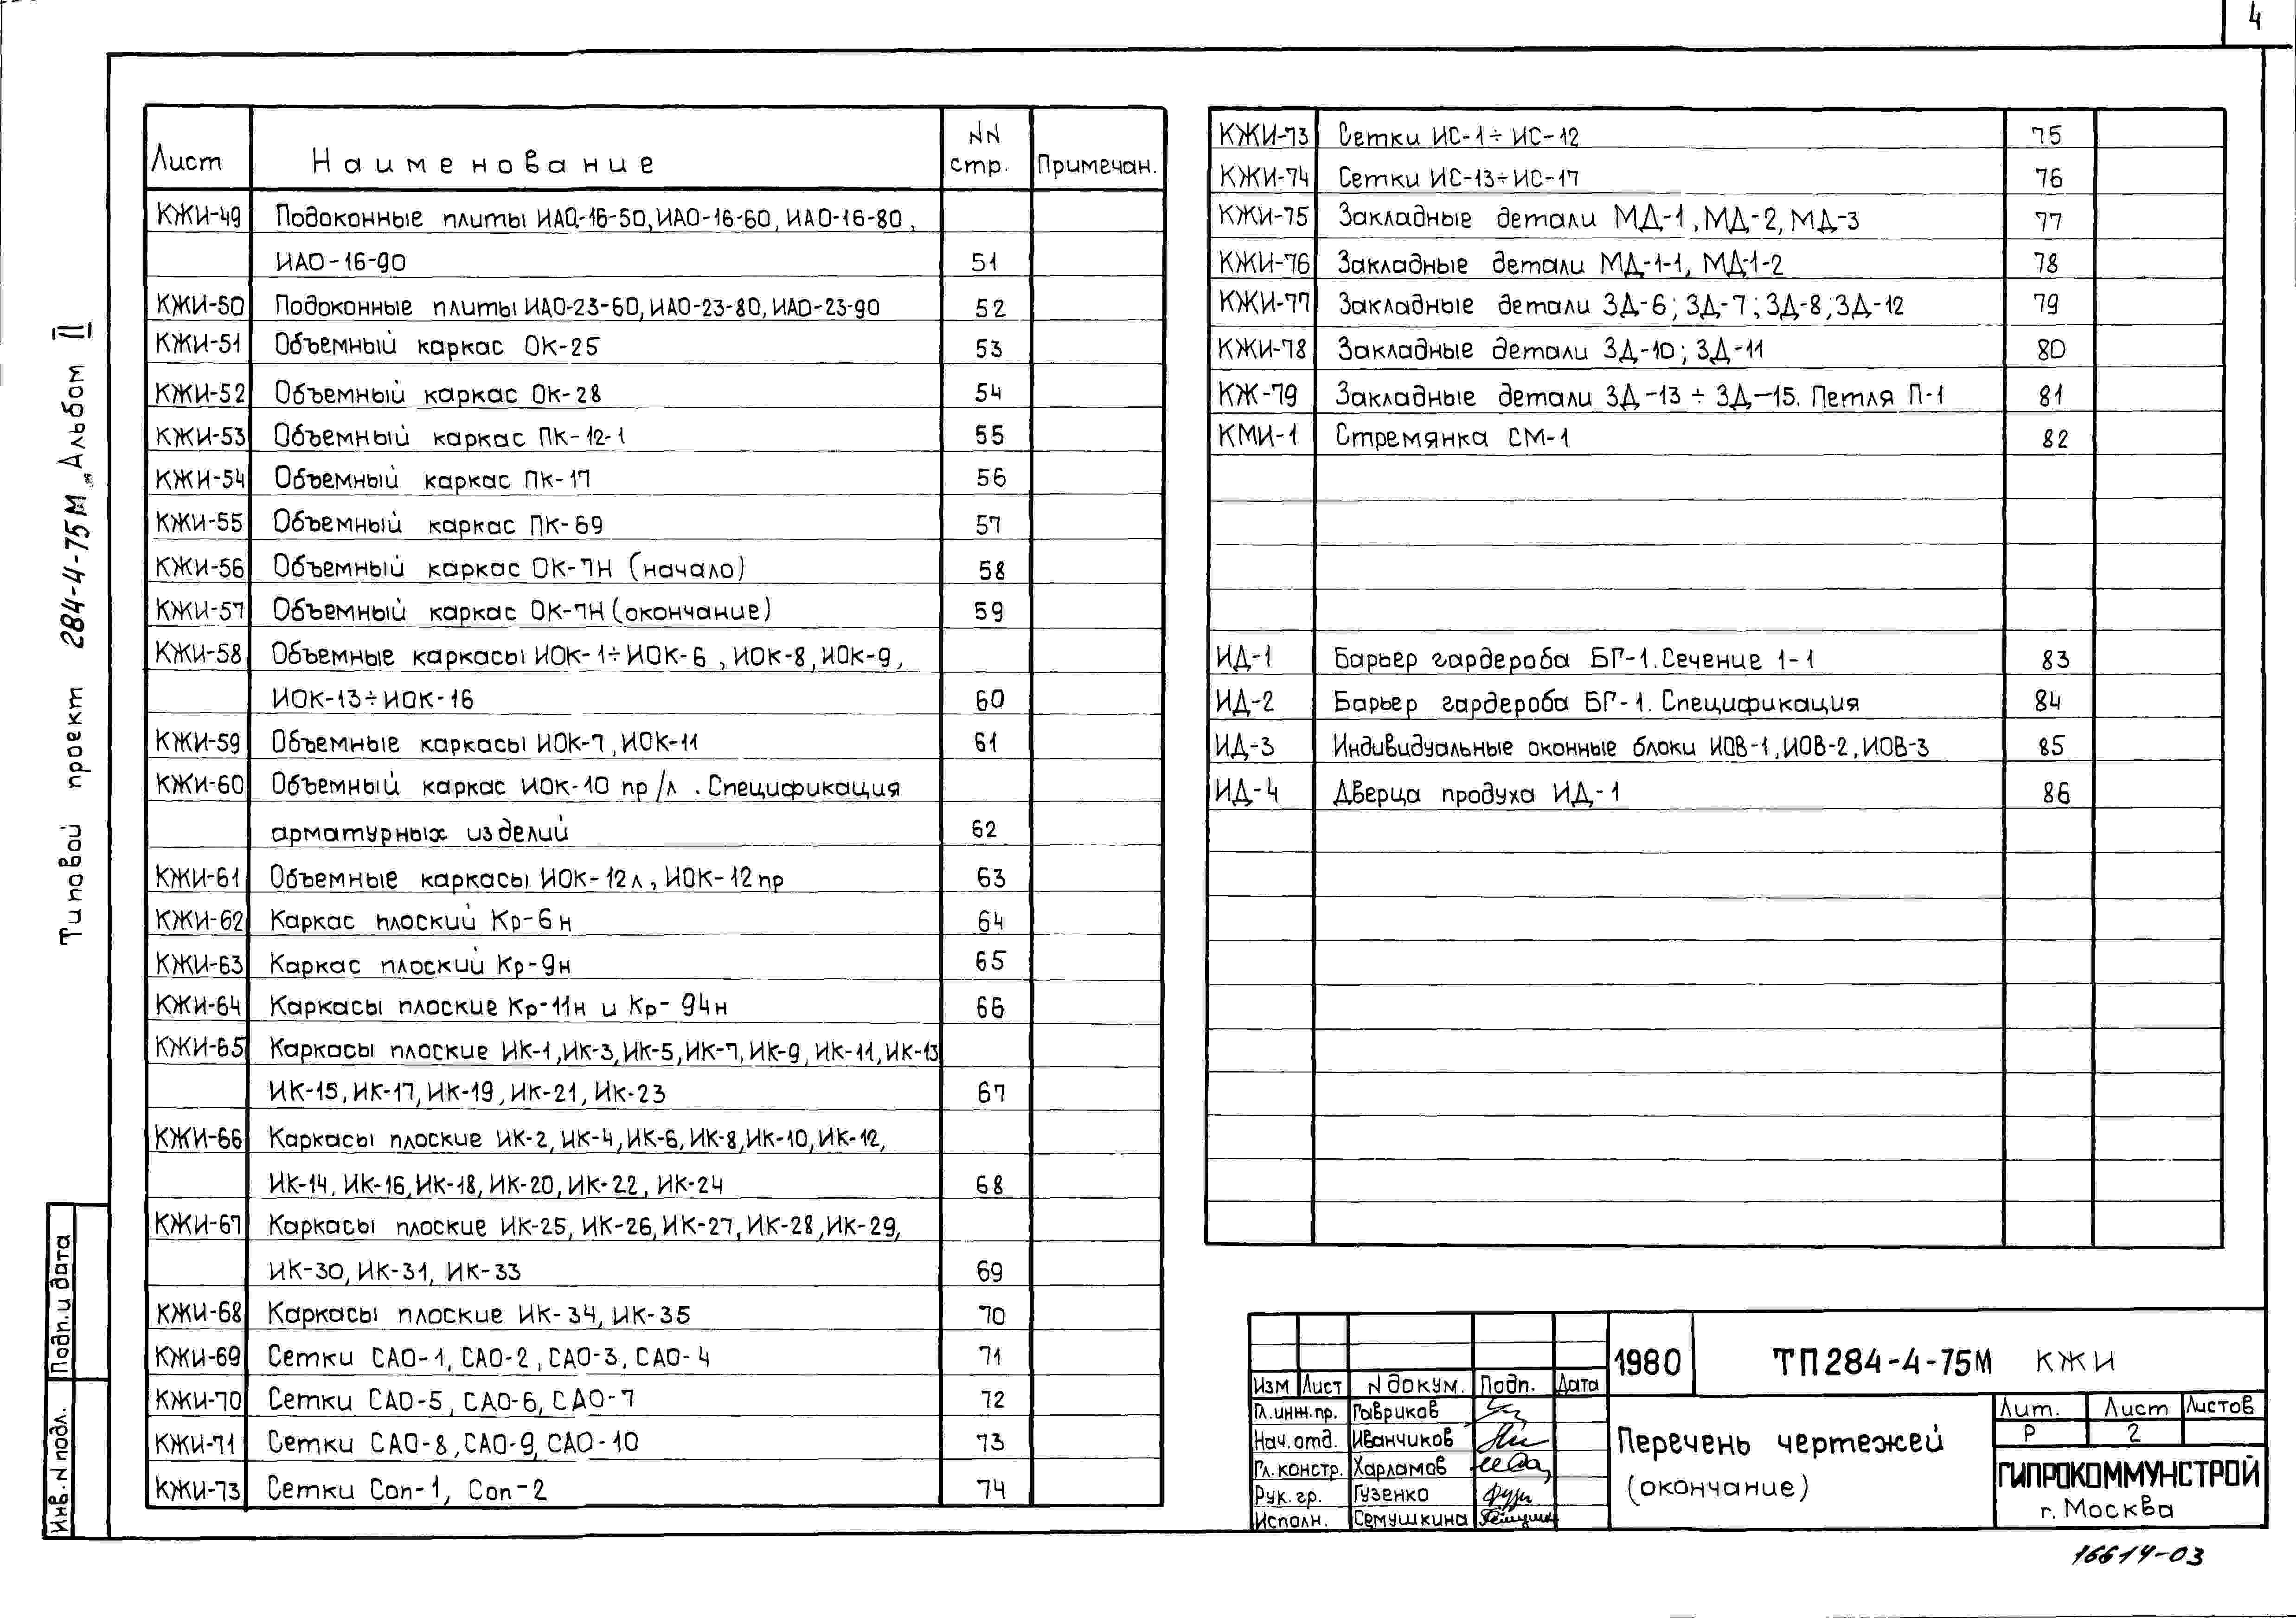 4
Типовой проект 284-4-75М Альбом II
Лист Наименование NN стр. Примечан.
КЖИ-49 Подоконные плиты ИАО-16-50, ИАО-16-60, ИАО-16-80,
ИАО-16-90 51
КЖИ-50 Подоконные плиты ИАО-23-60, ИАО-23-80, ИАО-23-90 52
КЖИ-51 Объемный каркас ОК-25 53
КЖИ-52 Объемный каркас ОК-28 54
КЖИ-53 Объемный каркас ПК-12-1 55
КЖИ-54 Объемный каркас ПК-17 56
КЖИ-55 Объемный каркас ПК-69 57
КЖИ-56 Объемный каркас ОК-7Н (начало) 58
КЖИ-57 Объемный каркас ОК-7Н (окончание) 59
КЖИ-58 Объемные каркасы ИОК-1÷ИОК-6, ИОК-8, ИОК-9,
ИОК-13÷ИОК-16 60
КЖИ-59 Объемные каркасы ИОК-7, ИОК-11 61
КЖИ-60 Объемный каркас ИОК-10 пр/л. Спецификация
арматурных изделий 62
КЖИ-61 Объемные каркасы ИОК-12л, ИОК-12пр 63
КЖИ-62 Каркас плоский Кр-6н 64
КЖИ-63 Каркас плоский Кр-9н 65
КЖИ-64 Каркасы плоские Кр-11н и Кр-94н 66
КЖИ-65 Каркасы плоские ИК-1, ИК-3, ИК-5, ИК-7, ИК-9, ИК-11, ИК-13
ИК-15, ИК-17, ИК-19, ИК-21, ИК-23 67
КЖИ-66 Каркасы плоские ИК-2, ИК-4, ИК-6, ИК-8, ИК-10, ИК-12,
ИК-14, ИК-16, ИК-18, ИК-20, ИК-22, ИК-24 68
КЖИ-67 Каркасы плоские ИК-25, ИК-26, ИК-27, ИК-28, ИК-29,
ИК-30, ИК-31, ИК-33 69
КЖИ-68 Каркасы плоские ИК-34, ИК-35 70
КЖИ-69 Сетки САО-1, САО-2, САО-3, САО-4 71
КЖИ-70 Сетки САО-5, САО-6, САО-7 72
КЖИ-71 Сетки САО-8, САО-9, САО-10 73
КЖИ-73 Сетки Соп-1, Соп-2 74
КЖИ-73 Сетки ИС-1÷ИС-12 75
КЖИ-74 Сетки ИС-13÷ИС-17 76
КЖИ-75 Закладные детали МД-1, МД-2, МД-3 77
КЖИ-76 Закладные детали МД-1-1, МД-1-2 78
КЖИ-77 Закладные детали ЗД-6; ЗД-7; ЗД-8; ЗД-12 79
КЖИ-78 Закладные детали ЗД-10; ЗД-11 80
КЖ-79 Закладные детали ЗД-13÷ЗД-15. Петля П-1 81
КМИ-1 Стремянка СМ-1 82
ИД-1 Барьер гардероба БГ-1. Сечение 1-1 83
ИД-2 Барьер гардероба БГ-1. Спецификация 84
ИД-3 Индивидуальные оконные блоки ИОВ-1, ИОВ-2, ИОВ-3 85
ИД-4 Дверца продуха ИД-1 86
Подп. и дата
Инв. N подл.
1980 ТП 284-4-75М КЖИ
Изм Лист N докум. Подп. Дата
Гл. инж. пр. Гавриков
Нач. отд. Иванчиков
Гл. констр. Харламов
Рук. гр. Гузенко
Исполн. Семушкина
Перечень чертежей
(окончание)
Лит. Лист Листов
Р 2
ГИПРОКОММУНСТРОЙ
г. Москва
16614-03